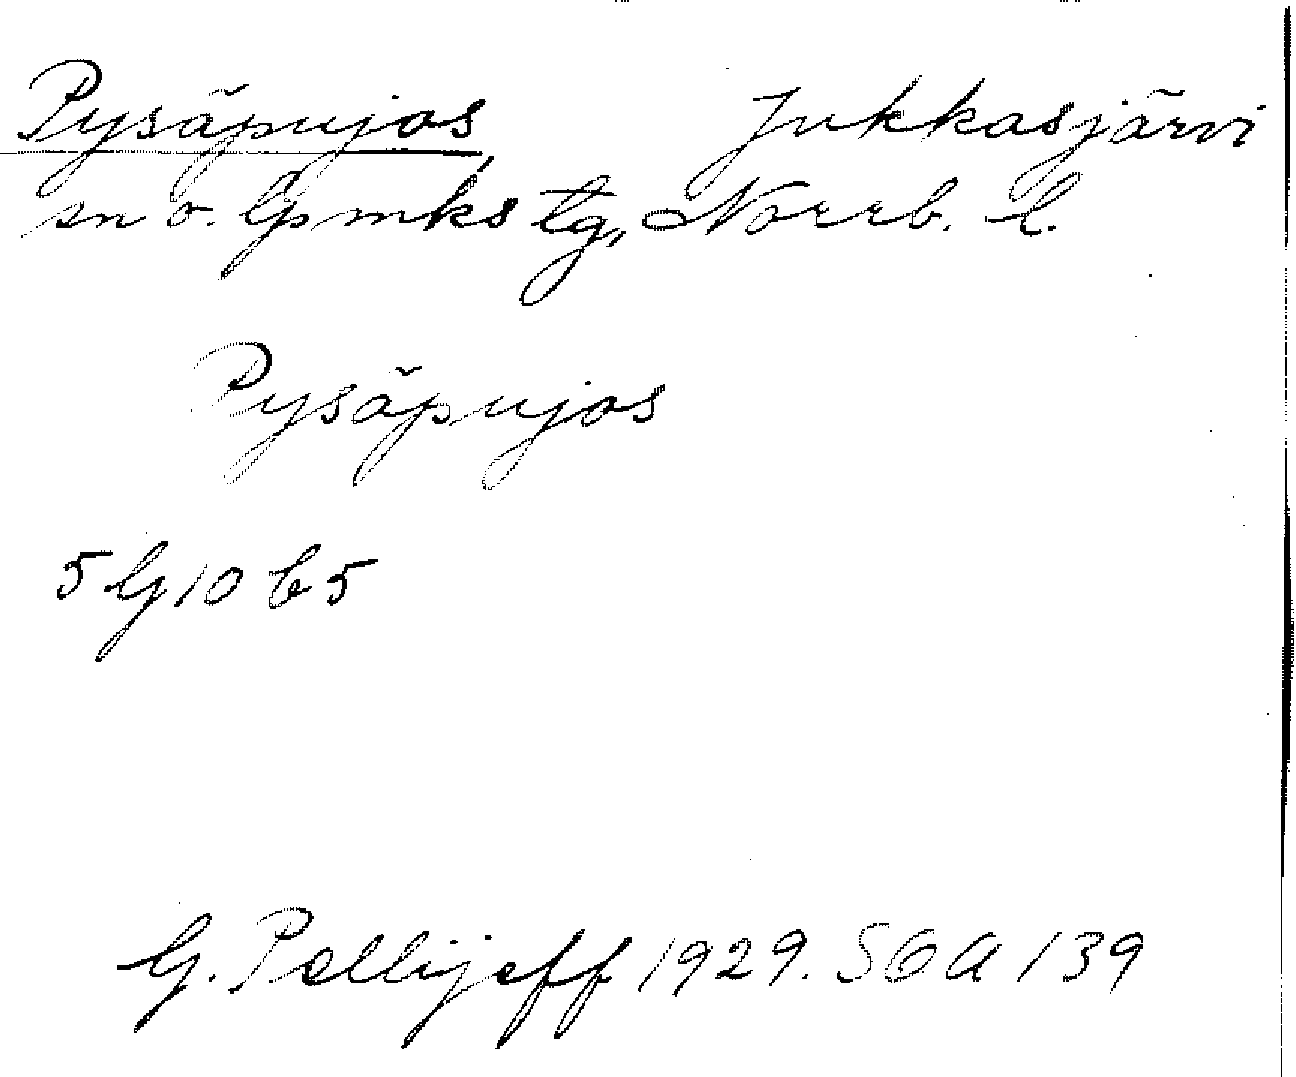 Pysäpujos, Jukkasjärvi
sn o. lpmks tg., Norrb. l.
Pysäpujos
5 G 10 b 5
G. Pellijeff 1929. SOA 139